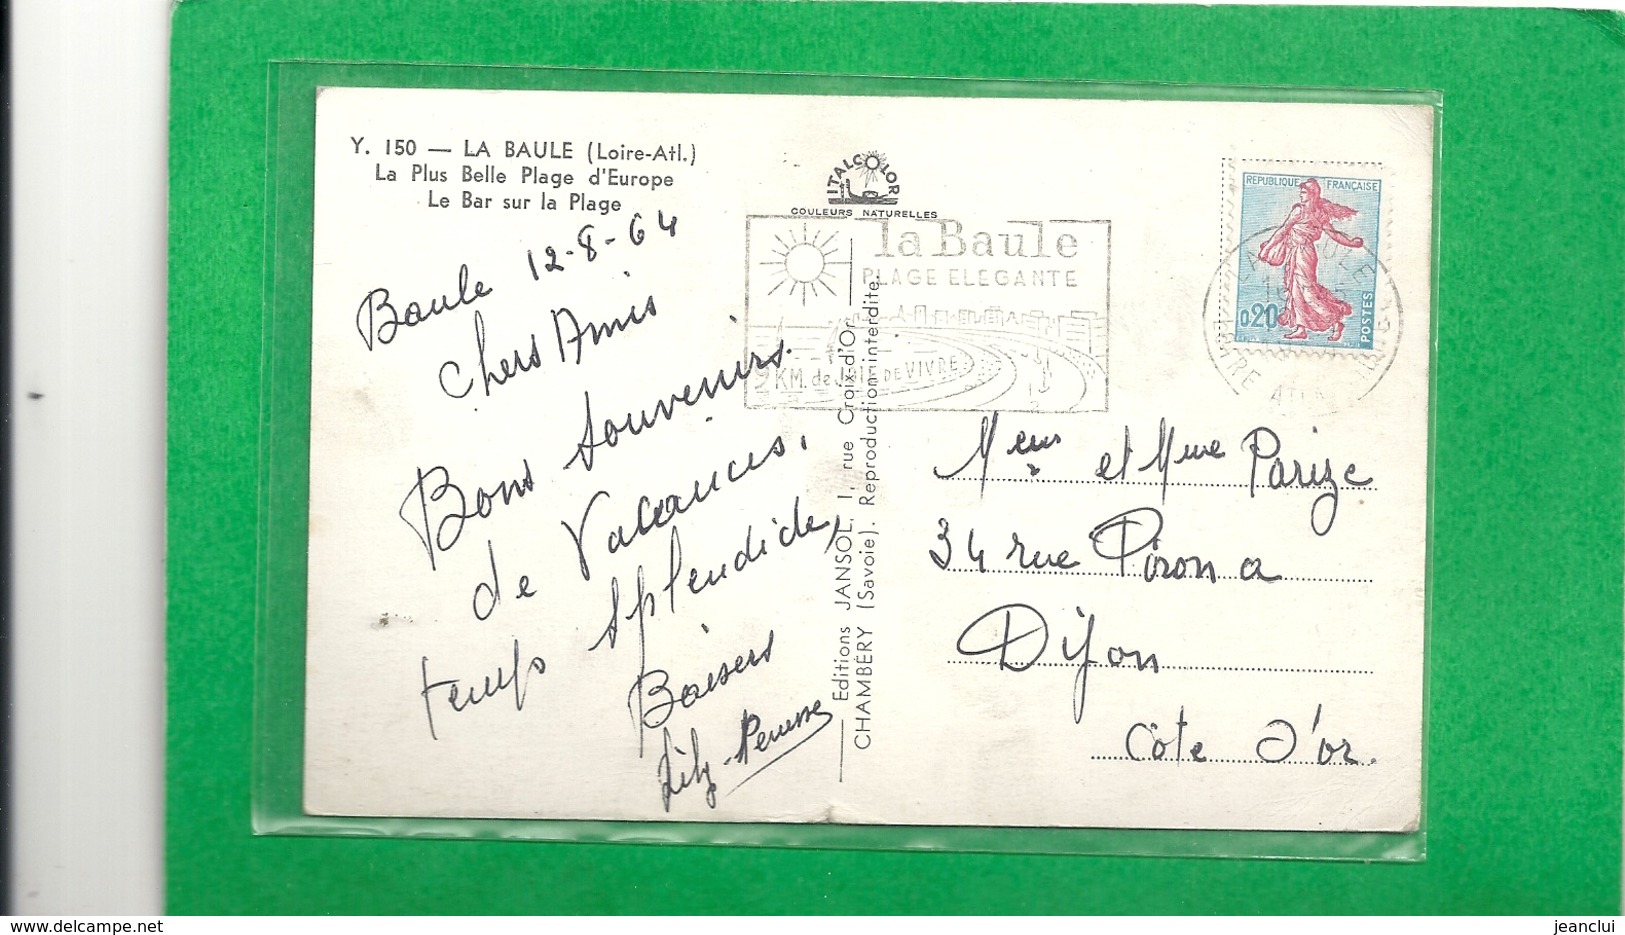 Y. 150 — LA BAULE (Loire-Atl.)
La Plus Belle Plage d'Europe
Le Bar sur la Plage
ITALCOLOR
COULEURS NATURELLES
la Baule
PLAGE ELEGANTE
9 KM. de JOIE DE VIVRE
REPUBLIQUE FRANÇAISE
0,20
POSTES
LOIRE ATLANTIQUE
Baule 12-8-64
Chers Amis
Bons souvenirs
de Vacances.
temps splendide,
Baisers
Lily-
Editions JANSOL, 1, rue Croix-d'Or
CHAMBÉRY (Savoie). Reproduction interdite.
et Mme Parize
34 rue Piron
Dijon
Côte d'or.
jeanclui